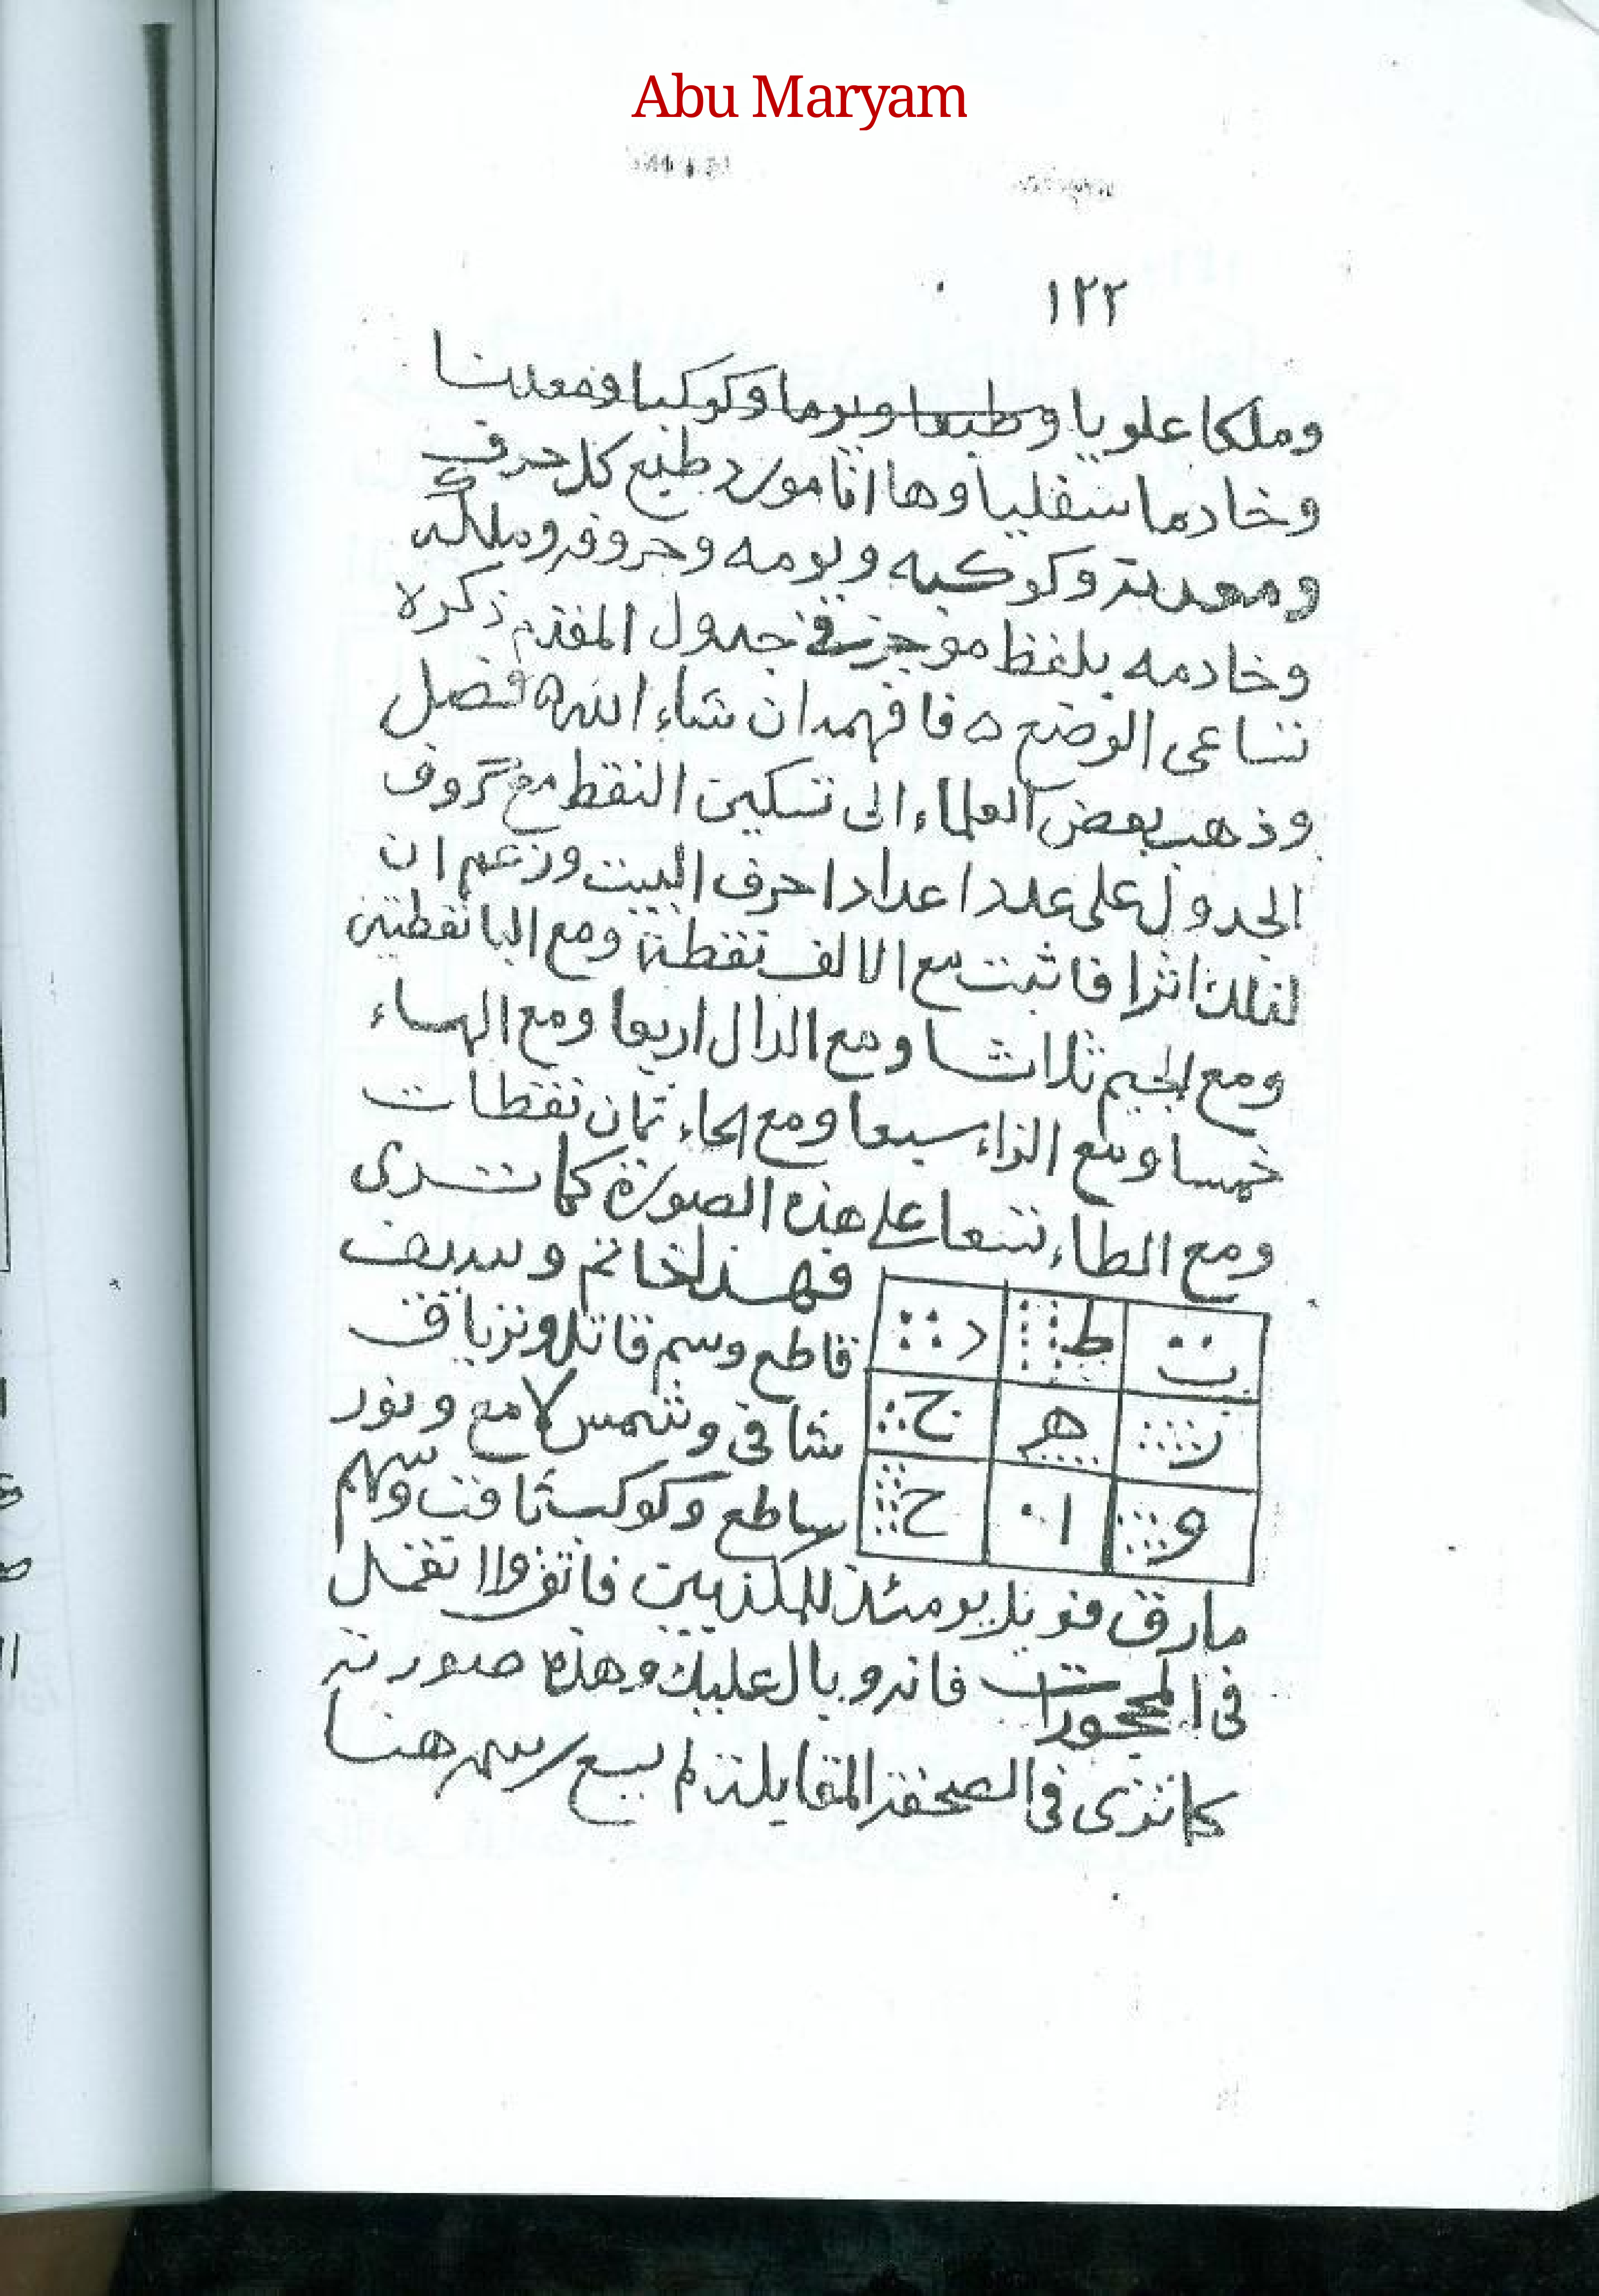 Abu Maryam
١٢٢
وملكا علويا وطبعا ويوما وكوكبا ومعدنا
وخادما سفليا وها انا مورد طبع كل حرف
ومعدنه وكوكبه ويومه وحروفه وملكه
وخادمه بلفظ موجز في جدول المقدم ذكره
تساعى الوضع ه فافهمه ان شاء الله ه فصل
وذهب بعض العلماء الى تسكين النقط مع حروف
الجدول على عدد اعداد احرف البيت وزعم ان
لذلك اثرا فاثبت مع الالف نقطة ومع البا نقطتين
ومع الجيم ثلاثا ومع الدال اربعا ومع الهاء
خمسا ومع الزاء سبعا ومع الحاء ثمان نقطات
ومع الطاء تسعا على هذه الصورة كما تـرى
فهذا خاتم وسيف
قاطع وسم قاتل وترياق
شافى وشمس لامع ونور
ساطع وكوكب ثاقب وسهم
د ط ب
ج هـ ز
ح ا و
مارق فويل يومئذ للمكذبين فاتقوا لا تفعل
فى المحجورات فانه وبال عليك وهذه صورته
كما ترى فى الصحفة المقابلة لم يسع رسمه هنا